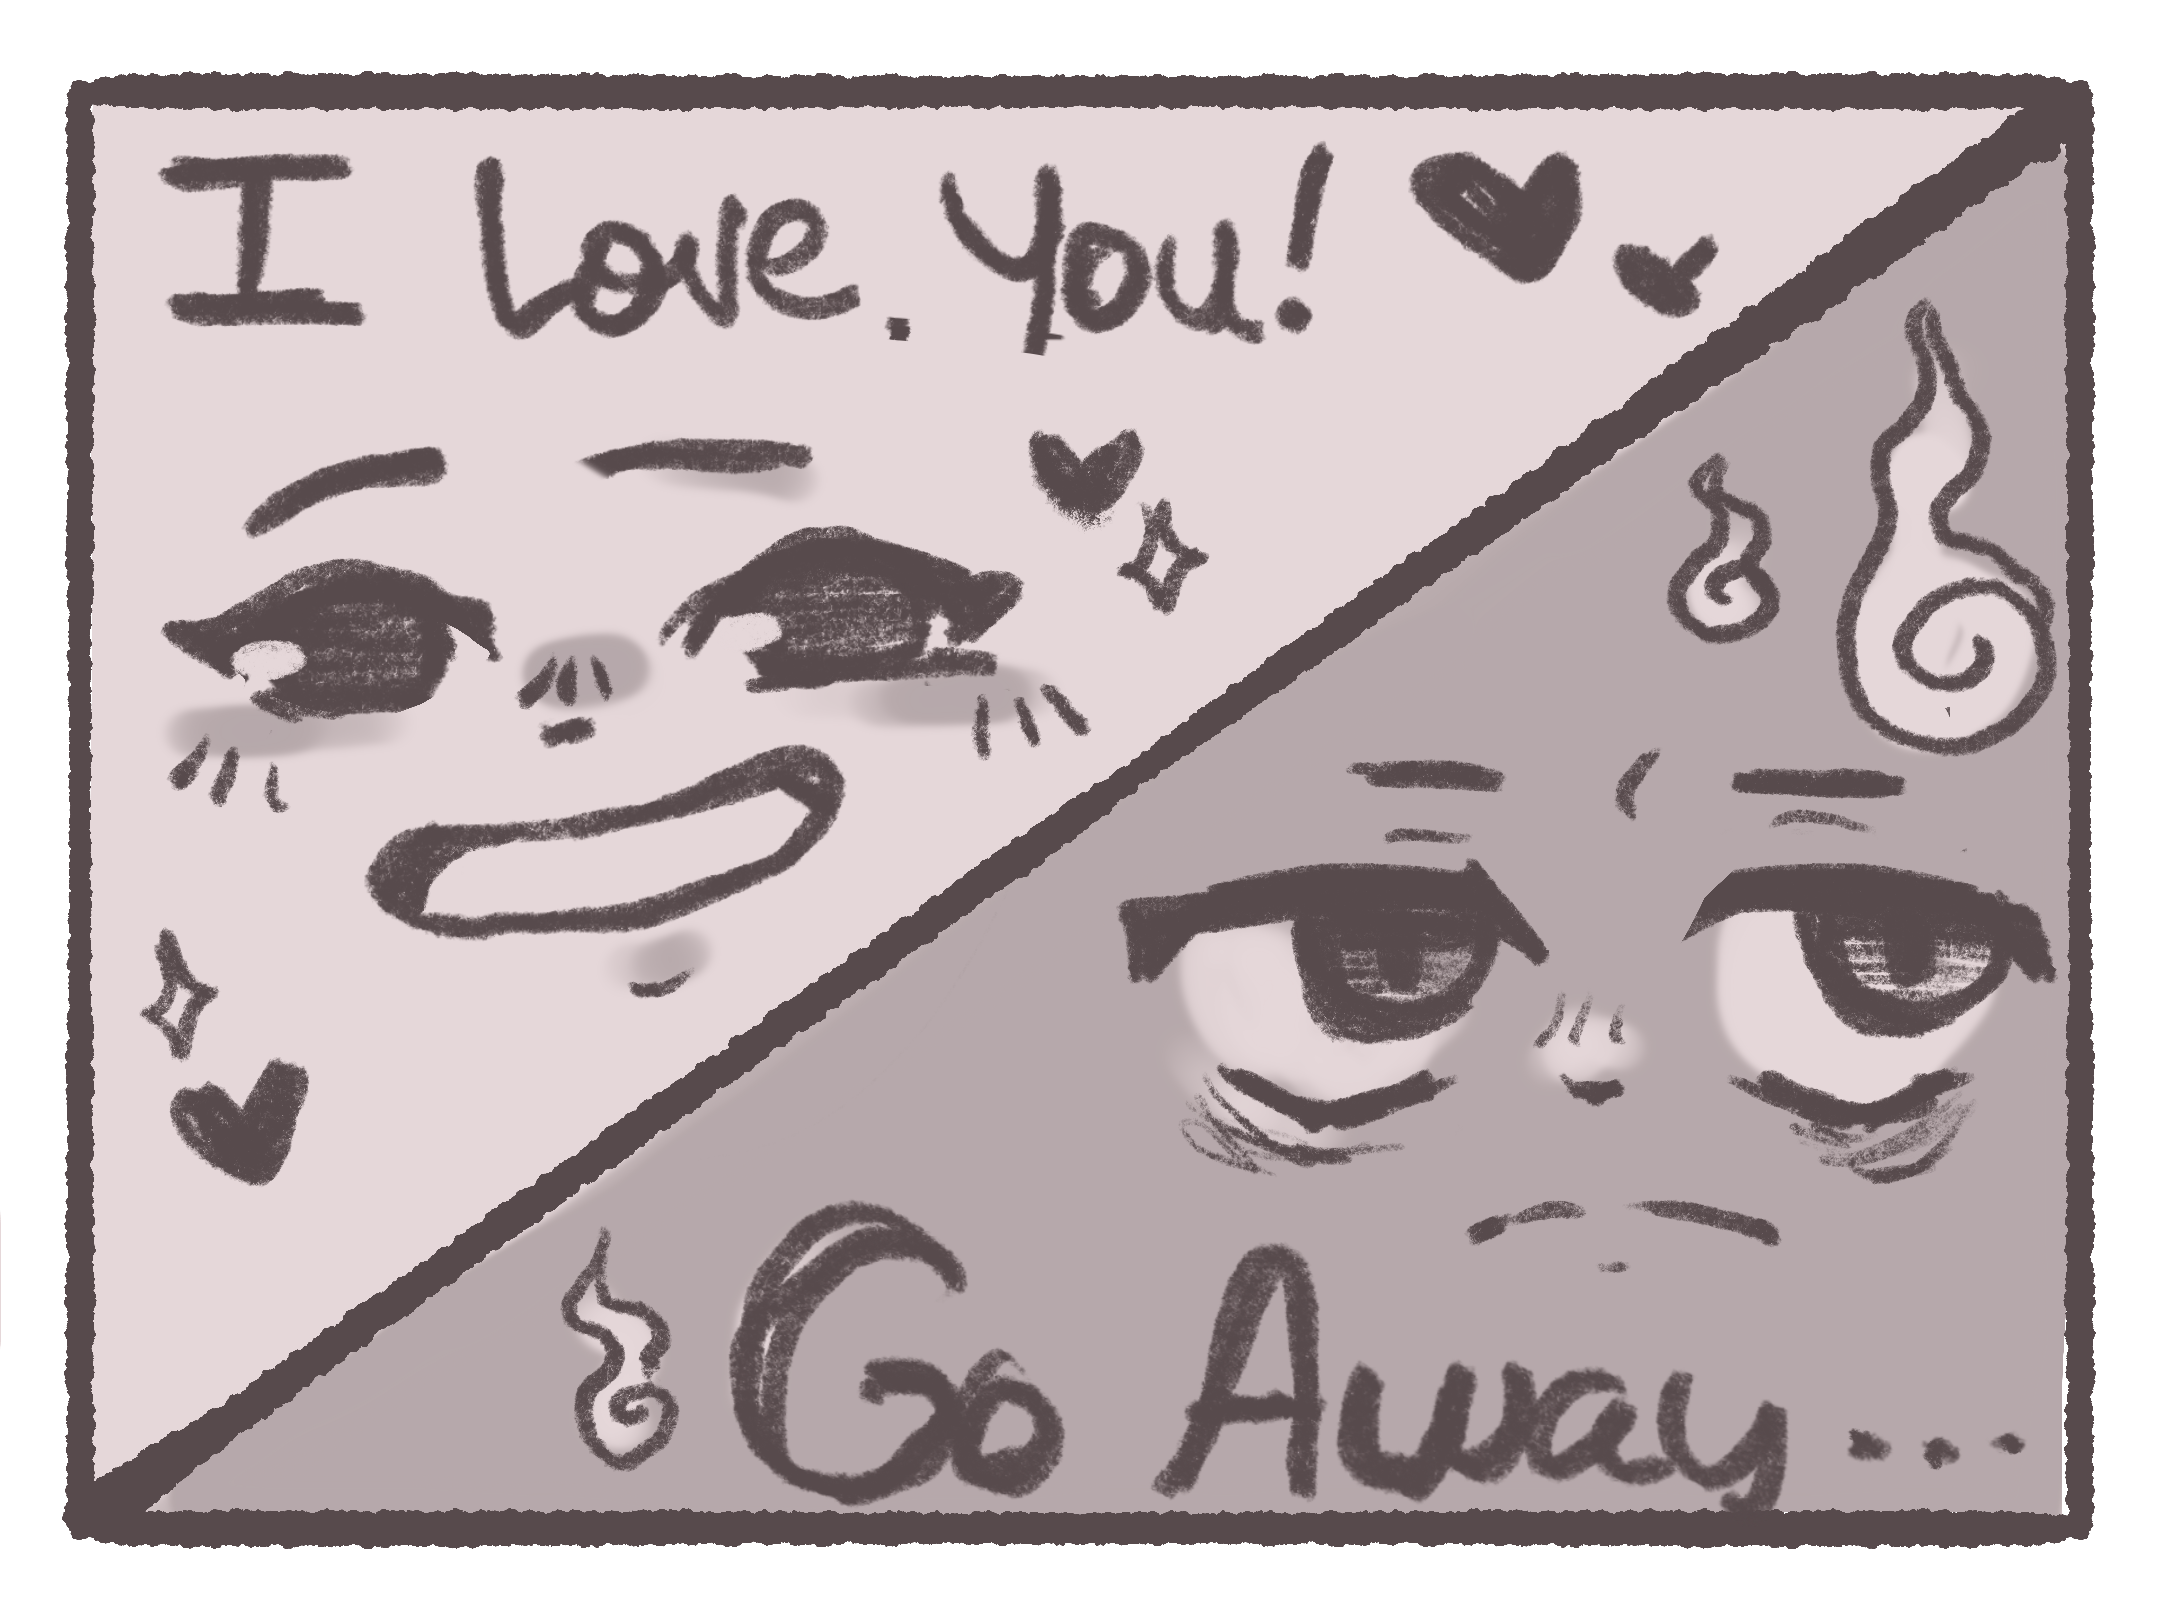 I Love. You!
Go Away...